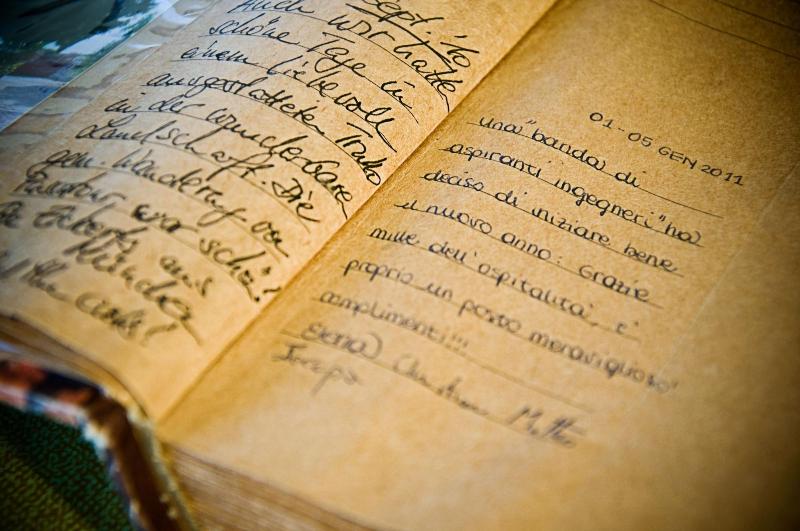 Sept. '10
Auch wir hatten
schöne Tage in
einem liebevoll
ausgestatteten Trullo
in der wunderbare
Landschaft. Die
gem. Wanderung von
war schön!
aus
01-05 GEN 2011
una "banda" di
aspiranti ingegneri" ha
deciso di iniziare bene
il nuovo anno: Grazie
mille dell'ospitalità, e'
proprio un posto meraviglioso!
complimenti!!!
Elena Christian Matteo